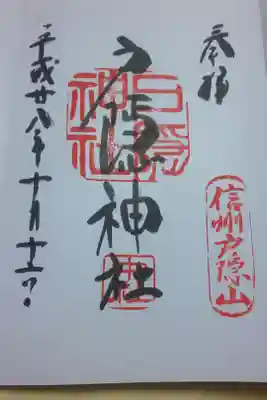 奉拝
信州戸隠山
戸隠神社
戸隠神社
平成廿八年十月